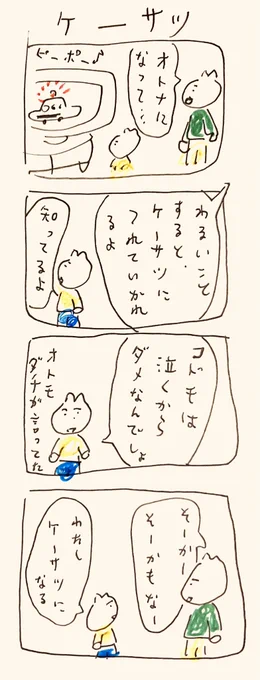 ケーサツ
オトナに
なって…
ピーポー♪
わるいこと
すると、
ケーサツに
つれていかれ
るよ
知ってるよ
コドモは
泣くから
ダメなんでしょ
オトモ
ダチが言ってた
そーかー
そーかもなー
わたし
ケーサツに
なる